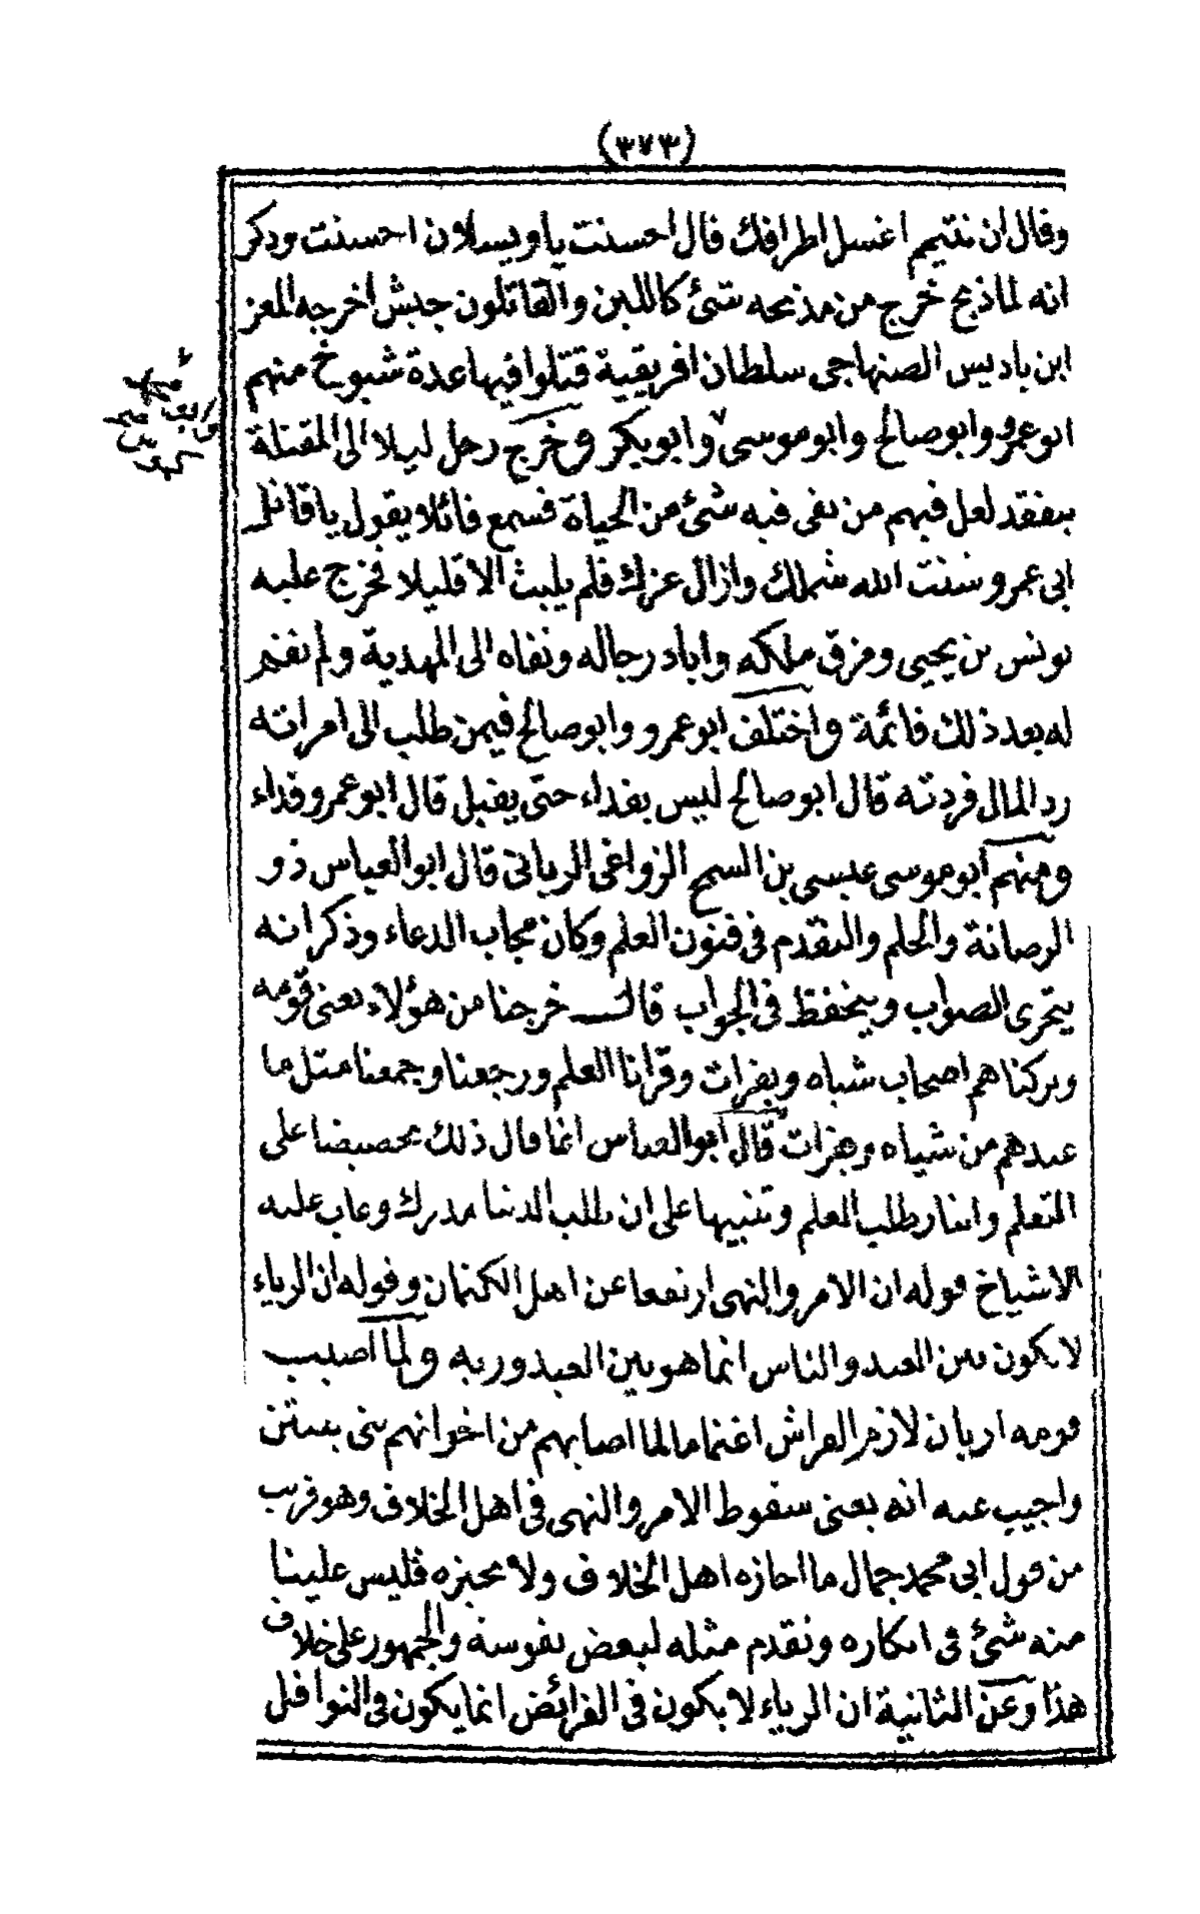 (٣٧٣)
وقال ان نتيمم اغسل اطرافك قال احسنت يا ويسلان احسنت وذكر
انه لما ذبح خرج من مذبحه شئ كاللبن والقاتلون جيش اخرجه المعز
ابن باديس الصنهاجي سلطان افريقية قتلوا فيها عدة شيوخ منهم
ابو عمرو وابو صالح وابو موسى وابو بكر وخرج رجل ليلا الى المقتلة
يتفقد لعل فيهم من بقى فيه شئ من الحياة فسمع قائلا يقول يا قاتل
ابى عمرو شتت الله شملك وازال عزك فلم يلبث الا قليلا فخرج عليه
يونس بن يحيى ومزق ملكه واباد رجاله ونفاه الى المهدية ولم تقم
له بعد ذلك قائمة واختلف ابو عمرو وابو صالح فيمن طلب الى امراته
رد المال فردته قال ابو صالح ليس بفداء حتى يقبل قال ابو عمرو فداء
ومنهم ابو موسى عيسى بن السمح الزواغى الربانى قال ابو العباس ذو
الرصانة والحلم والتقدم فى فنون العلم وكان مجاب الدعاء وذكر انه
يتحرى الصواب ويتحفظ فى الجواب قال خرجنا من هؤلاء يعنى قومه
وتركناهم اصحاب شياه وبقرات وقرانا العلم ورجعنا وجمعنا مثل ما
عندهم من شياه وبقرات قال ابو العباس انما قال ذلك تحضيضا على
التعلم وايثار طلب العلم وتنبيها على ان طلب الدنيا مدرك وعاب عليه
الاشياخ قوله ان الامر والنهى ارتفعا عن اهل الكتمان وقوله ان الرياء
لا يكون بين العبد والناس انما هو بين العبد وربه ولما اصيب
قومه اريان لازم الفراش اغتماما لما اصابهم من اخوانهم بنى يستن
واجيب عنه انه يعنى سقوط الامر والنهى فى اهل الخلاف وهو قريب
من قول ابى محمد جمال ما اجازه اهل الخلاف ولا نجيزه فليس علينا
منه شئ فى انكاره وتقدم مثله لبعض نفوسة والجمهور على خلاف
هذا وعن الثانية ان الرياء لا يكون فى الفرائض انما يكون فى النوافل